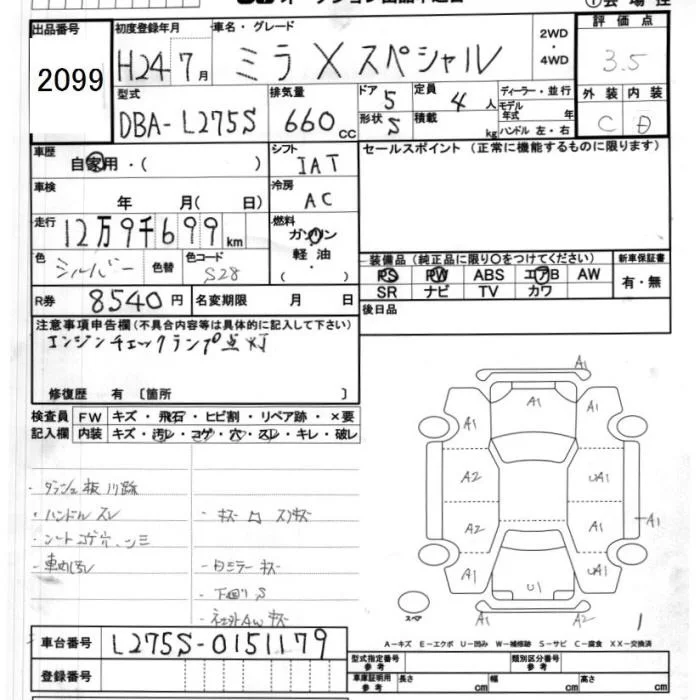 出品番号
2099
初度登録年月
H24 7月
車名・グレード
ミラ X スペシャル
2WD
・
4WD
評価点
3.5
外装 内装
C D
型式
DBA-L275S
排気量
660cc
ドア 5
形状 S
定員 4人
積載 kg
ディーラー・並行
モデル年式 年
ハンドル 左・右
車歴
自家用・( )
シフト
IAT
車検
年 月( 日)
冷房
AC
走行
12万9千699km
燃料
ガソリン
軽油
・
( )
色
シルバー
色替
色コード
S28
R券 8540円
名変期限 月 日
セールスポイント(正常に機能するものに限ります)
装備品(純正品に限り○をつけてください)
PS PW ABS エアB AW
SR ナビ TV カワ
新車保証書
有・無
後日品
注意事項申告欄(不具合内容等は具体的に記入して下さい)
エンジンチェックランプ点灯
修復歴 有〔箇所 〕
検査員記入欄
FW キズ・飛石・ヒビ割・リペア跡・×要
内装 キズ・汚レ・コゲ・穴・スレ・キレ・破レ
・ハンドル スレ
・シートコゲ穴、シミ
・ミラーキズ
・下廻り S
A1
A1
A1
A1
A2
UA1
A2
A1
A1
A1
UA1
U1
A1
A2
スペア
1
A-キズ E-エクボ U-凹み W-補修跡 S-サビ C-腐食 XX-交換済
車台番号 L275S-0151179
登録番号
型式指定番号
参考
類別区分番号
参考
車庫証明用
参考
長さ cm
幅 cm
高さ cm